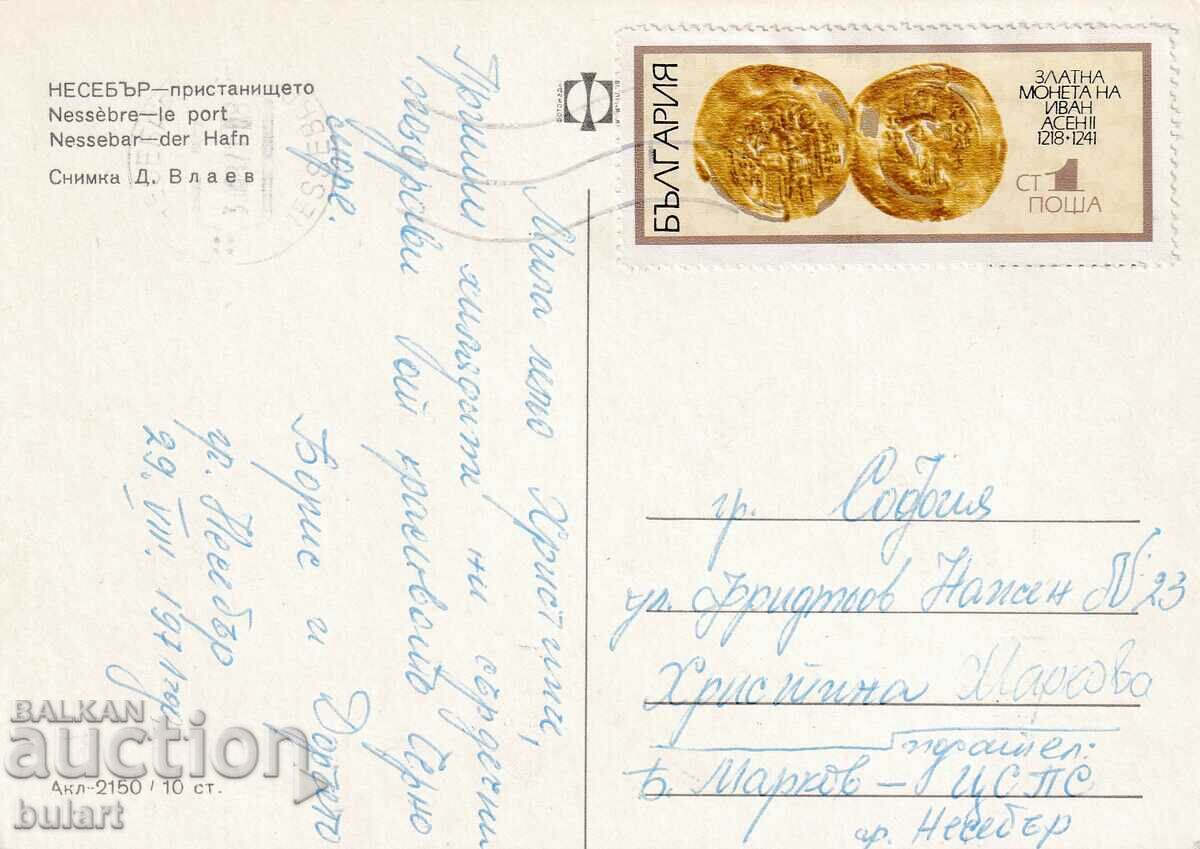 НЕСЕБЪР—пристанището
Nessèbre—le port
Nessebar—der Hafn
Снимка Д. Влаев
БЪЛГАРИЯ
ЗЛАТНА
МОНЕТА НА
ИВАН
АСЕН II
1218·1241
СТ 1
ПОЩА
Мила лято Христина,
Приими хилядите ни сърдечни
поздрави от красивото Черно
море.
Борис и
гр. Несебър
29. VIII. 1971 год.
гр. София
ул. Фридтьов Нансен № 23
Христина Маркова
подател:
Б. Марков — ЦСПС
гр. Несебър
Акл-2150 / 10 ст.
BALKAN
auction
bulart